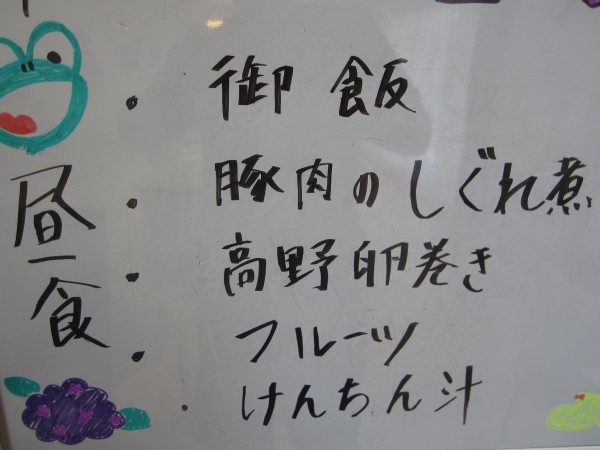 昼食
・御飯
・豚肉のしぐれ煮
・高野卵巻き
・フルーツ
・けんちん汁